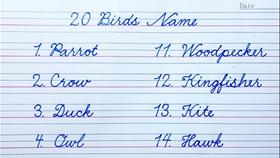 Date
20 Birds Name
1. Parrot
2. Crow
3. Duck
4. Owl
11. Woodpecker
12. Kingfisher
13. Kite
14. Hawk